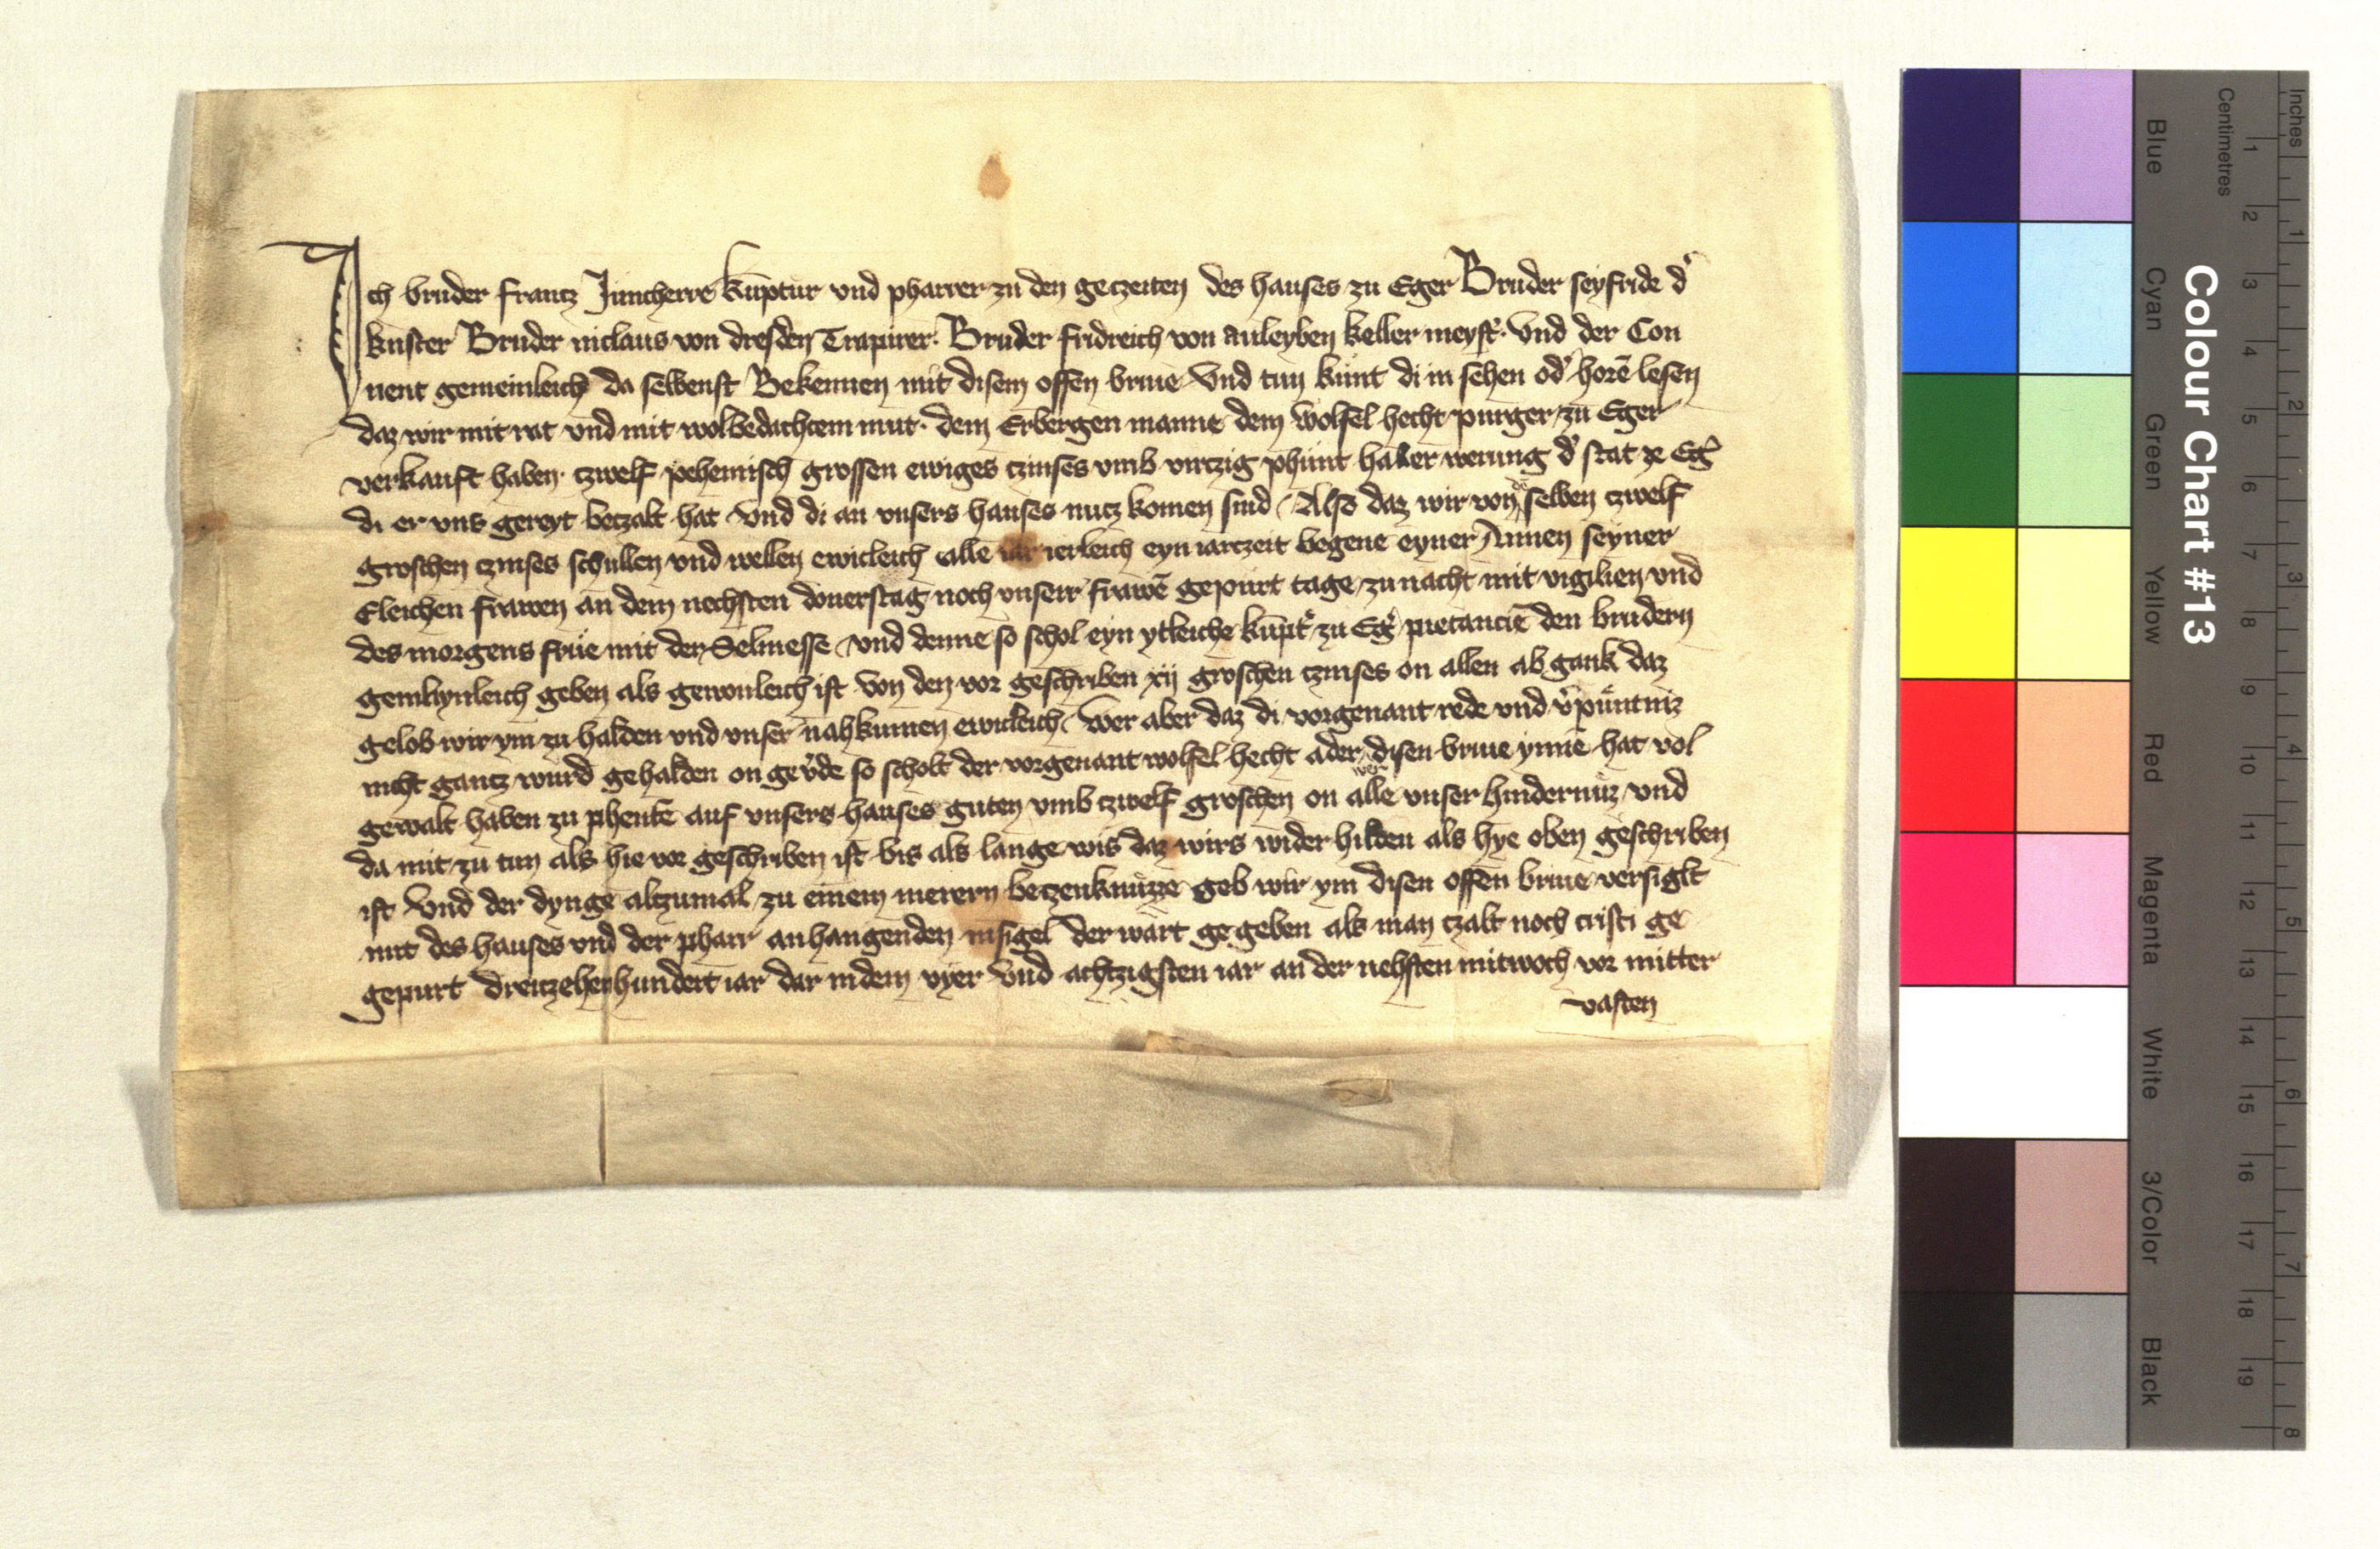 Ich bruder frantz Juncherre kuͤptur vnd pharrer zu den geczeiten des hauses zu Eger Bruder seyfride d'
kuster Bruder niclaus von dresden Trapirer. Bruder fridreich von auleyben keller meyst'. Vnd der Con
uent gemeinleich da selbenst Bekennen mit disem offen briue Vnd tun kunt di in sehen od' horē lesen
daz wir mit rat vnd mit wolbedachtem mut. dem Erbergen manne dem wolfel hecht purger zu Eger
verkauft haben. czwelf pehemisch grossen ewiges czinses vmb virczig phunt haller werung d' stat ze Eg'
di er vns gereyt betzalt hat Vnd di an vnsers hauses nutz komen sind Also daz wir von dē selben czwelf
groschen czinses schullen vnd wellen ewicleich alle iar ierleich eyn iarczeit begenē eyner Annen seyner
Eleichen frawen an dem nechsten donerstag noch vnserr frawē gepurt tage zu nacht mit vigilien vnd
des morgens frue mit der Selmesse vnd denne so schol eyn ytleiche kūpt' zu Eg' pietanciē den brudern
geben als gewonleich ist von den vor geschriben xij groschen czinses on allen ab gank daz
gelob wir ym zu halden vnd vnser nahkumen ewicleich Wer aber daz di vorgenant rede vnd v'puͤntniz
nicht gantz wurd gehalden on gev'de so scholt der vorgenant wolfel hecht ader wer disen briue ynnē hat vol
gewalt haben zu phentē auf vnsers hauses guten vmb czwelf groschen on alle vnser hindernuͤz vnd
da mit zu tun als hie vor geschriben ist bis als lange wis daz wirs wider hilden als hye oben geschriben
ist Vnd der dynge altzumal zu einem merern betzenknuͤzze geb wir ym disen offen briue versiglt
mit des hauses vnd der pharr anhangenden insigel der wart ge geben als man czalt noch cristi ge
gepurt dreuzehenhundert iar dar in dem vyer Vnd achtzigsten iar an der nehsten mitwoch vor mitter
vasten
Colour Chart #13
Blue Cyan Green Yellow Red Magenta White 3/Color Black
Centimetres
1 2 3 4 5 6 7 8 9 10 11 12 13 14 15 16 17 18 19
Inches
1 2 3 4 5 6 7 8